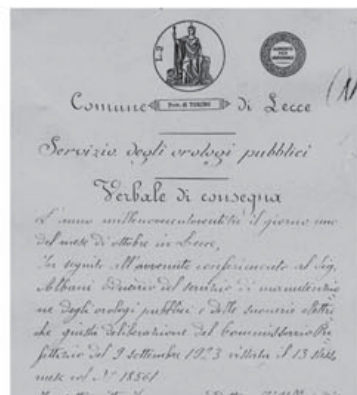 L. 2
Comune di Lecce
Servizio degli orologi pubblici
Verbale di consegna
L'anno millenovecentoventitre il giorno uno
del mese di ottobre in Lecce,
In seguito all'avvenuto conferimento al Sig.
Albani Oderzio del servizio di manutenzio
ne degli orologi pubblici e delle suonerie elettri
che giusta deliberazione del Commissario Pre
fettizio del 9 settembre 1923 vistata il 13 stesso
mese col N° 18561